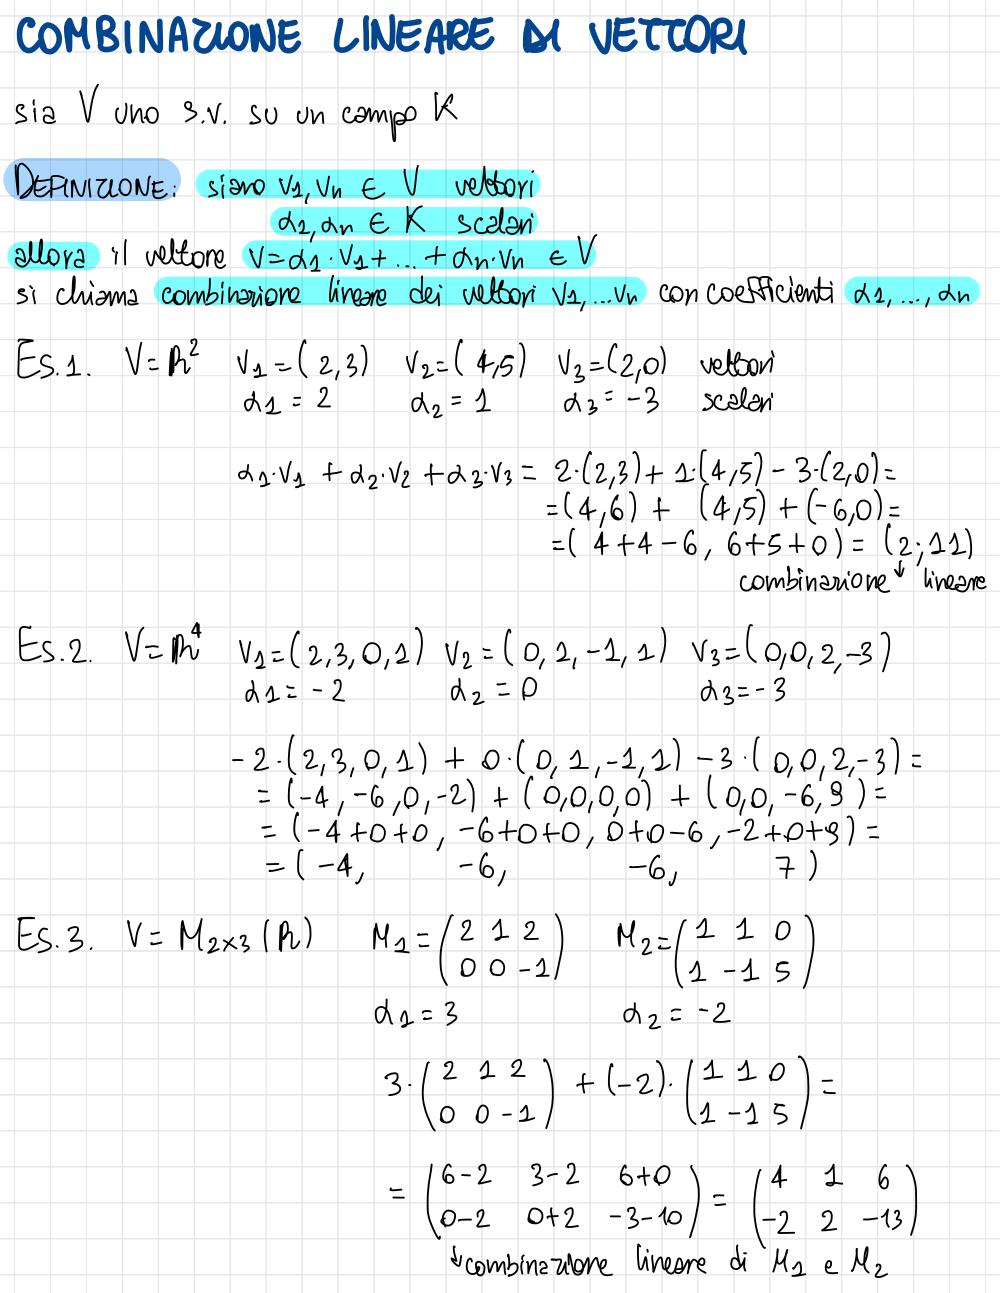 COMBINAZIONE LINEARE DI VETTORI
sia V uno s.v. su un campo K
DEFINIZIONE: siano v1, vn ∈ V vettori
α1, αn ∈ K scalari
allora il vettore v=α1·v1+...+αn·vn ∈ V
si chiama combinazione lineare dei vettori v1,...vn con coefficienti α1, ..., αn
Es.1. V=R² v1=(2,3) v2=(4,5) v3=(2,0) vettori
α1 = 2 α2 = 1 α3 = -3 scalari
α1·v1 + α2·v2 + α3·v3 = 2·(2,3)+ 1·(4,5) - 3·(2,0)=
=(4,6) + (4,5) +(-6,0)=
=( 4+4-6, 6+5+0)= (2;11)
combinazione ↓ lineare
Es.2. V=R⁴ v1=(2,3,0,1) v2=(0,1,-1,1) v3=(0,0,2,-3)
α1=-2 α2=0 α3=-3
-2·(2,3,0,1) + 0·(0,1,-1,1) -3·(0,0,2,-3)=
= (-4,-6,0,-2) + (0,0,0,0) + (0,0,-6,9)=
= (-4+0+0, -6+0+0, 0+0-6, -2+0+9)=
= (-4, -6, -6, 7)
Es.3. V= M2×3 (R) M1=(2 1 2 M2=(1 1 0
0 0 -1) 1 -1 5)
α1=3 α2=-2
3·(2 1 2 +(-2)·(1 1 0 =
0 0 -1) 1 -1 5)
= (6-2 3-2 6+0 = (4 1 6
0-2 0+2 -3-10) -2 2 -13)
↓combinazione lineare di M1 e M2